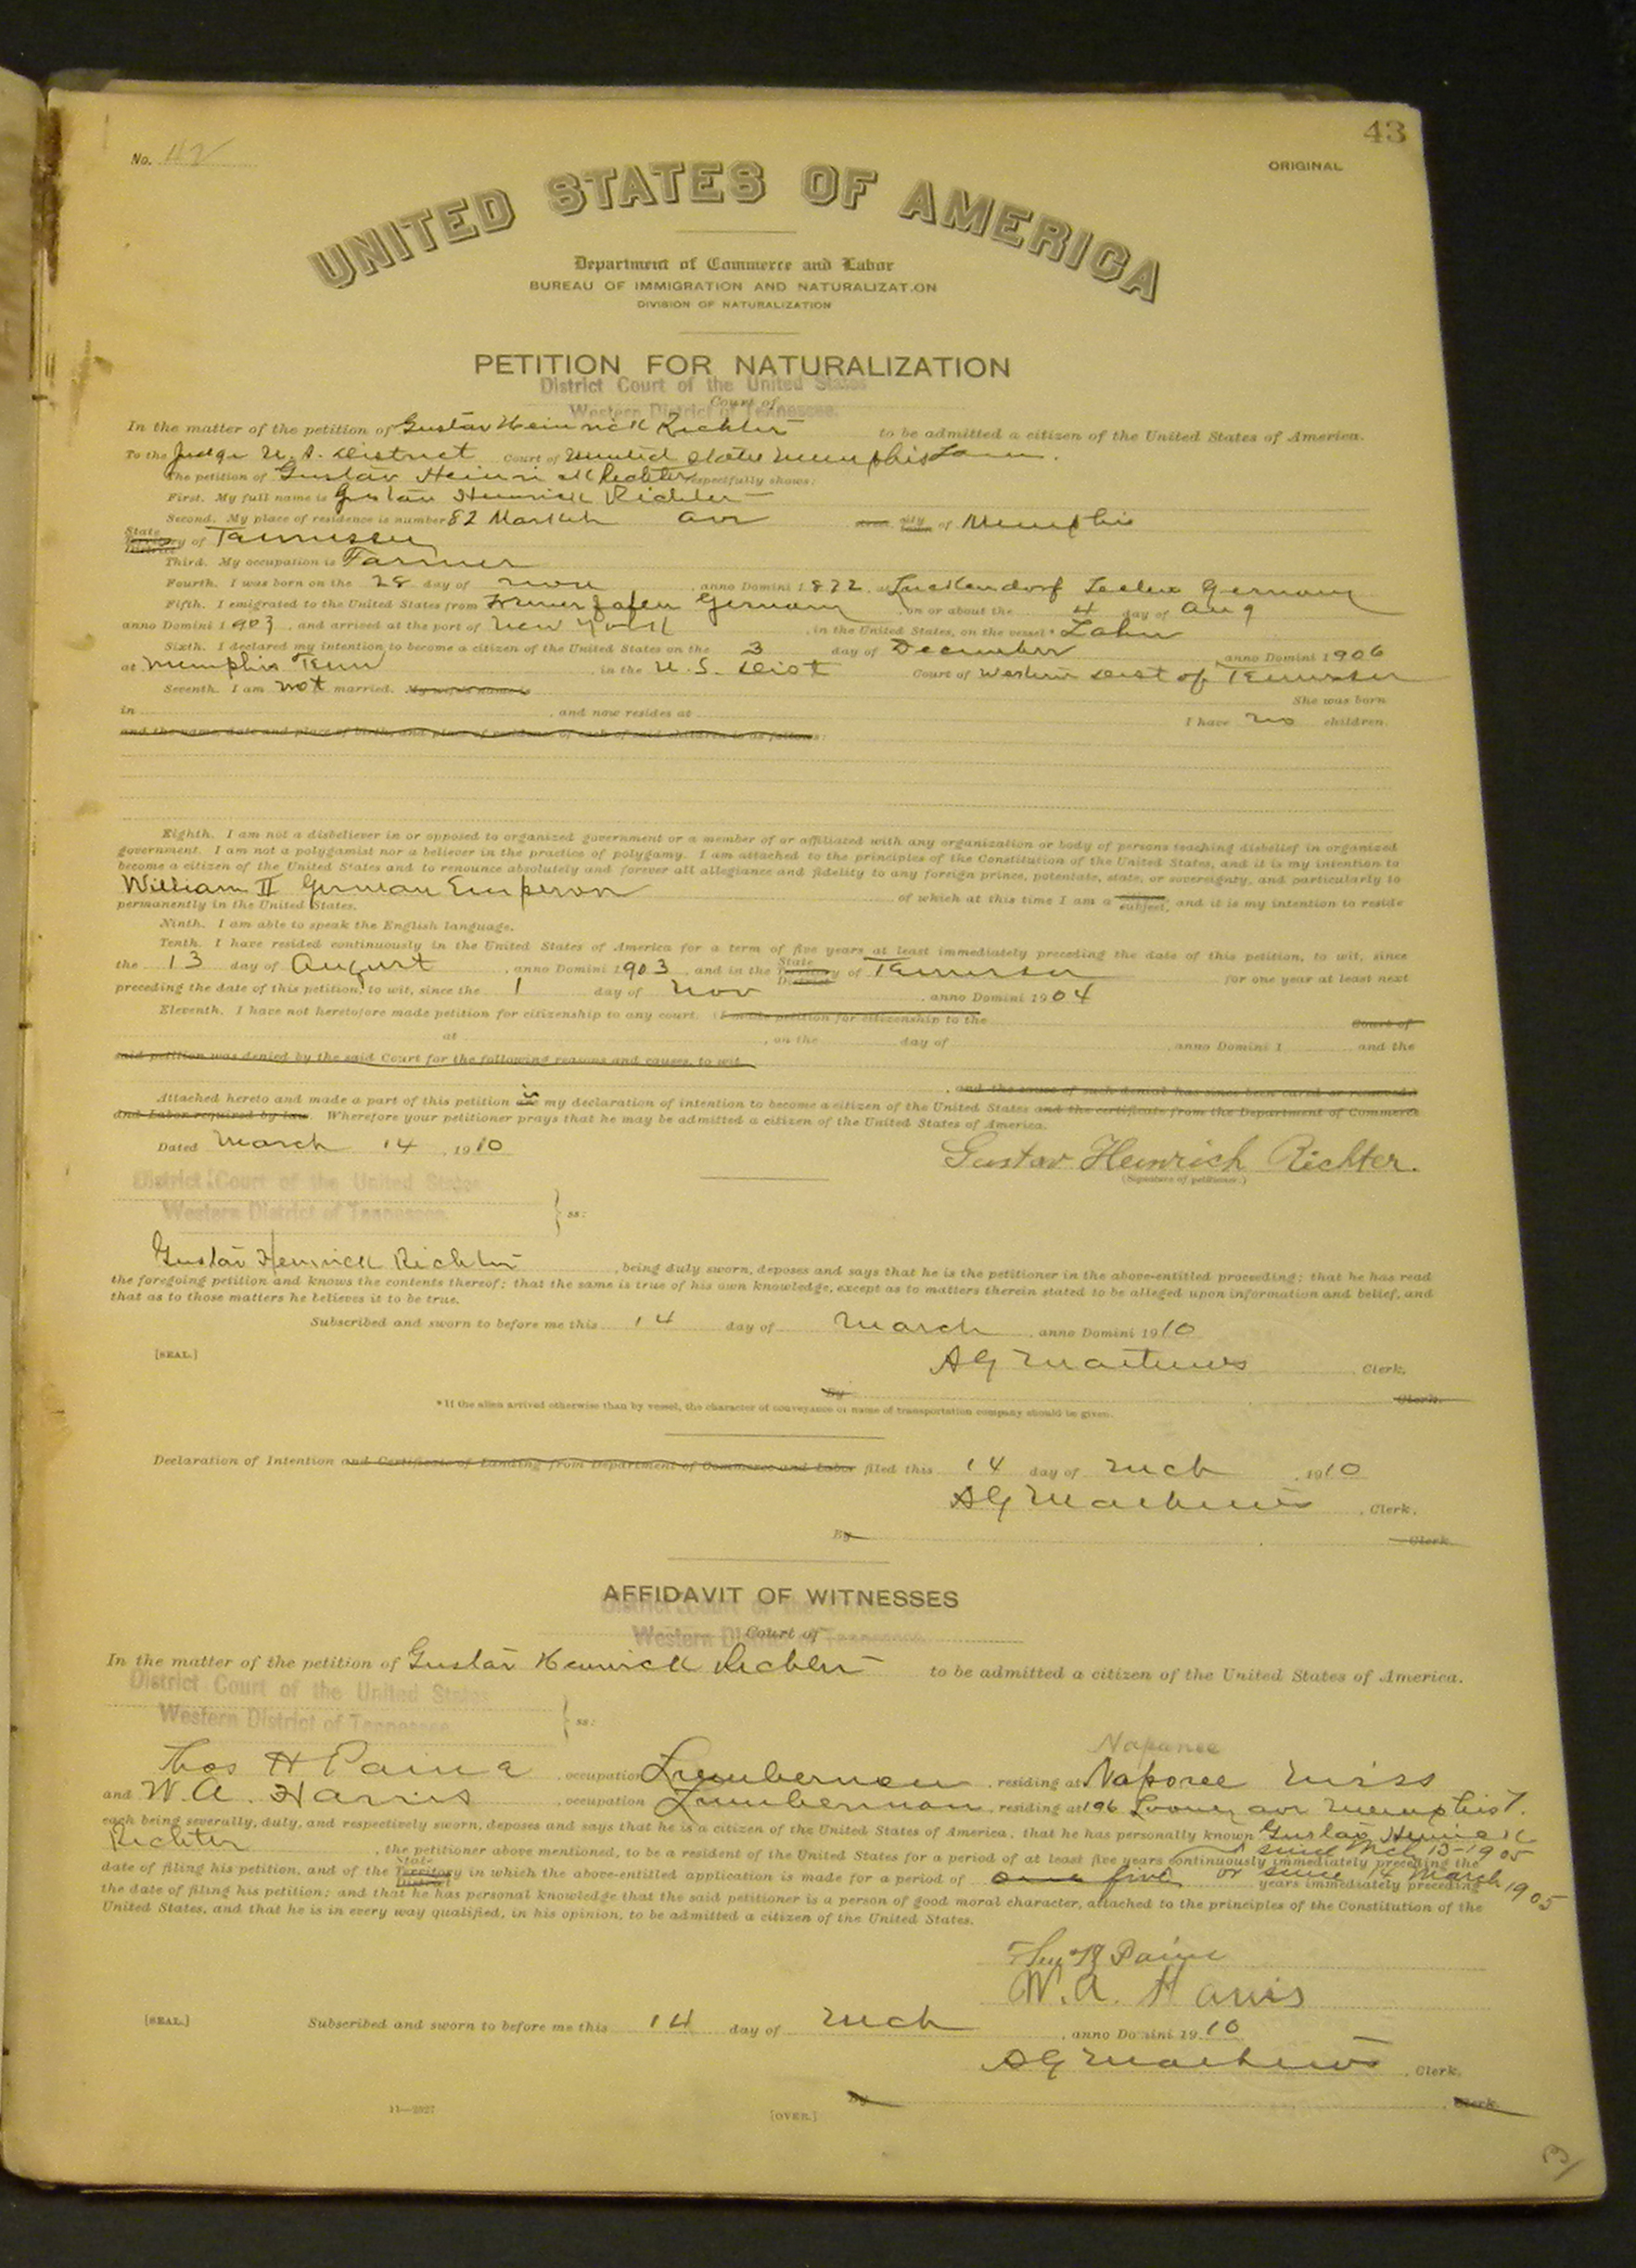 43
No. 42
ORIGINAL
UNITED STATES OF AMERICA
Department of Commerce and Labor
BUREAU OF IMMIGRATION AND NATURALIZATION
DIVISION OF NATURALIZATION
PETITION FOR NATURALIZATION
District Court of the United States
Court of
Western District of Tennessee.
In the matter of the petition of Gustav Heinrick Richter to be admitted a citizen of the United States of America.
To the Judge U. S. District Court of United States Memphis Tenn.
The petition of Gustav Heinrick Richter respectfully shows:
First. My full name is Gustav Heinrick Richter
Second. My place of residence is number 82 Market Ave town city of Memphis
State Territory District of Tennessee
Third. My occupation is Farmer
Fourth. I was born on the 28 day of Nov, anno Domini 1872, at Luckendorf Germany
Fifth. I emigrated to the United States from Bremerhafen Germany, on or about the 4 day of Aug
anno Domini 1903, and arrived at the port of New York, in the United States, on the vessel* Lahn
Sixth. I declared my intention to become a citizen of the United States on the 3 day of December, anno Domini 1906
at Memphis Tenn, in the U. S. Dist Court of Western Dist of Tennessee
Seventh. I am not married. My wife's name is She was born
in , and now resides at I have no children,
and the name, date and place of birth, and place of residence of each of said children is as follows:
Eighth. I am not a disbeliever in or opposed to organized government or a member of or affiliated with any organization or body of persons teaching disbelief in organized
government. I am not a polygamist nor a believer in the practice of polygamy. I am attached to the principles of the Constitution of the United States, and it is my intention to
become a citizen of the United States and to renounce absolutely and forever all allegiance and fidelity to any foreign prince, potentate, state, or sovereignty, and particularly to
William II German Emperor of which at this time I am a citizen subject, and it is my intention to reside
permanently in the United States.
Ninth. I am able to speak the English language.
Tenth. I have resided continuously in the United States of America for a term of five years at least immediately preceding the date of this petition, to wit, since
the 13 day of August, anno Domini 1903, and in the State Territory District of Tennessee for one year at least next
preceding the date of this petition, to wit, since the 1 day of Nov, anno Domini 1904
Eleventh. I have not heretofore made petition for citizenship to any court. (I made petition for citizenship to the Court of
at , on the day of , anno Domini 1 and the
said petition was denied by the said Court for the following reasons and causes, to wit,
, and the cause of such denial has since been cured or removed.
Attached hereto and made a part of this petition are is my declaration of intention to become a citizen of the United States and the certificate from the Department of Commerce
and Labor required by law. Wherefore your petitioner prays that he may be admitted a citizen of the United States of America.
Dated March 14, 1910
Gustav Heinrich Richter.
(Signature of petitioner.)
District Court of the United States
Western District of Tennessee. } ss:
Gustav Heinrick Richter, being duly sworn, deposes and says that he is the petitioner in the above-entitled proceeding; that he has read
the foregoing petition and knows the contents thereof; that the same is true of his own knowledge, except as to matters therein stated to be alleged upon information and belief, and
that as to those matters he believes it to be true.
Subscribed and sworn to before me this 14 day of March, anno Domini 1910
[SEAL.] A G Matthews, Clerk.
By Clerk.
*If the alien arrived otherwise than by vessel, the character of conveyance or name of transportation company should be given.
Declaration of Intention and Certificate of Landing from Department of Commerce and Labor filed this 14 day of Mch, 1910
A G Matthews, Clerk.
By Clerk.
AFFIDAVIT OF WITNESSES
District Court of the United States
Court of
Western District of Tennessee.
In the matter of the petition of Gustav Heinrick Richter to be admitted a citizen of the United States of America.
District Court of the United States
Western District of Tennessee. } ss:
Napanee
Thos H Paine, occupation Lumberman, residing at Naporee Miss
and W. A. Harris, occupation Lumberman, residing at 196 Looney ave Memphis T.
each being severally, duly, and respectively sworn, deposes and says that he is a citizen of the United States of America, that he has personally known Gustav Heinrick
Richter, the petitioner above mentioned, to be a resident of the United States for a period of at least five years continuously immediately preceding the
since Mch 13-1905
date of filing his petition, and of the State Territory District in which the above-entitled application is made for a period of one five or since 14 March 1905 years immediately preceding
the date of filing his petition; and that he has personal knowledge that the said petitioner is a person of good moral character, attached to the principles of the Constitution of the
United States, and that he is in every way qualified, in his opinion, to be admitted a citizen of the United States.
Thos H Paine
W. A. Harris
[SEAL.] Subscribed and sworn to before me this 14 day of Mch, anno Domini 1910
A G Matthews, Clerk.
By , Clerk.
11—2927
[OVER.]